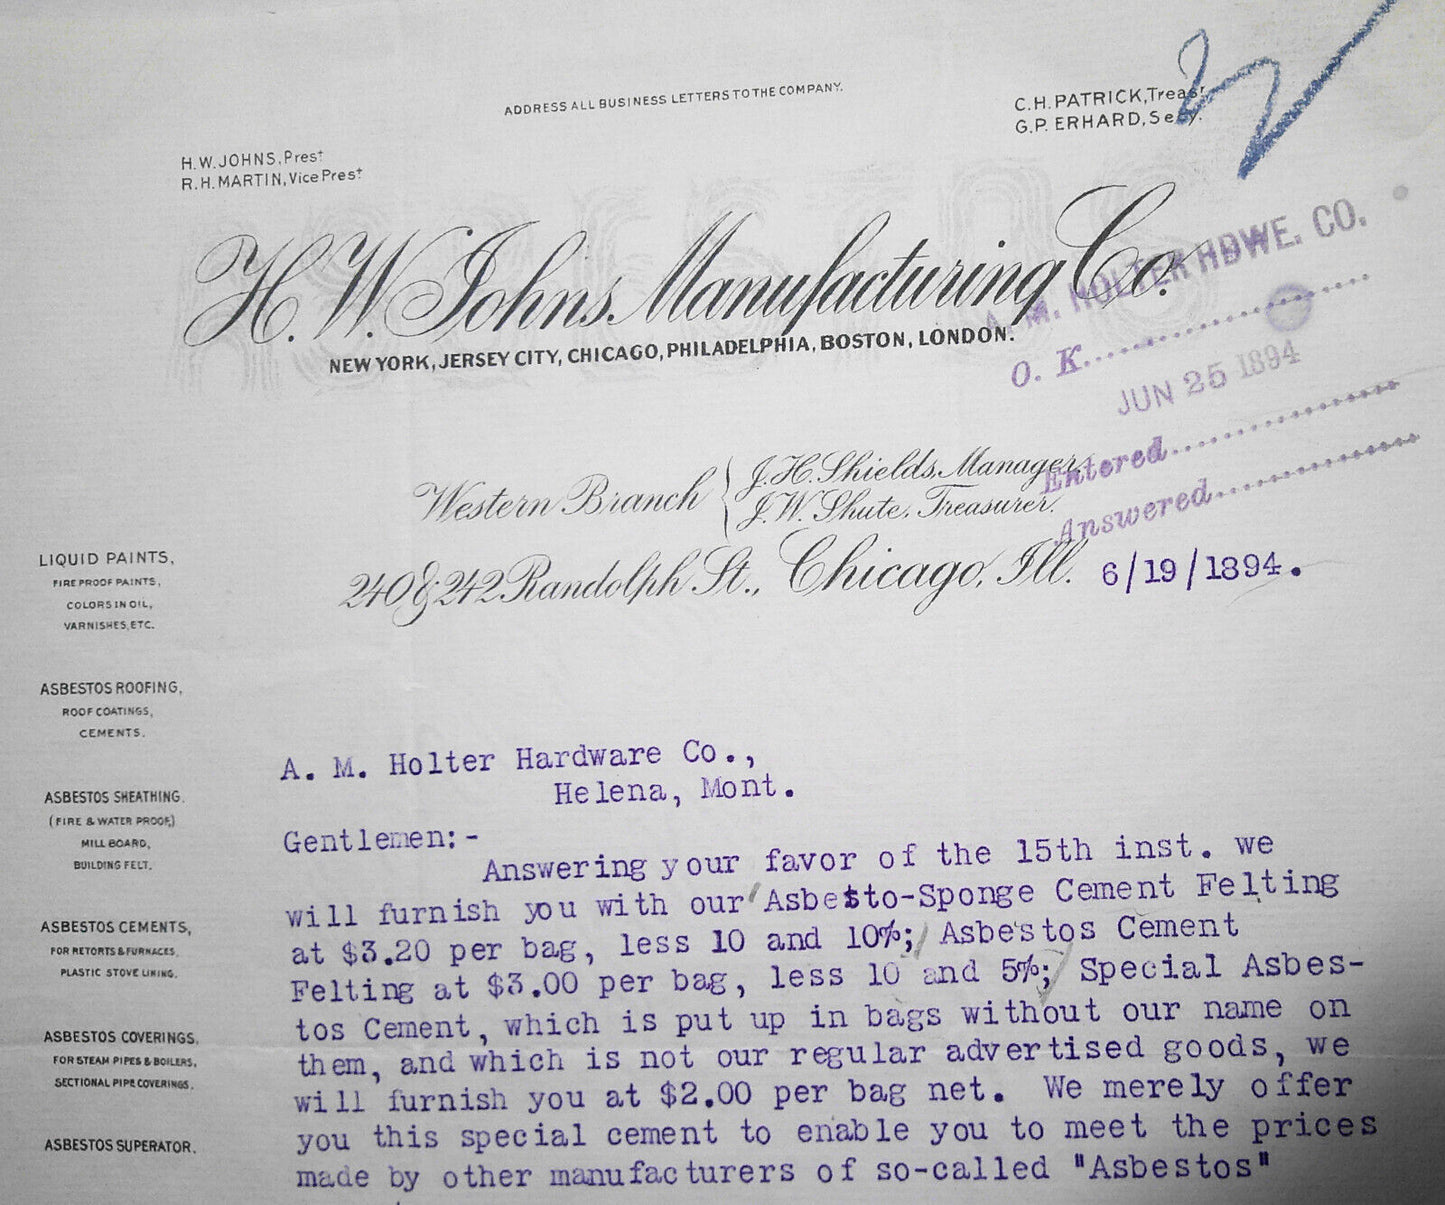 ADDRESS ALL BUSINESS LETTERS TO THE COMPANY.
C.H. PATRICK, Treast
G.P. ERHARD, Secy.
H.W. JOHNS, Prest
R.H. MARTIN, Vice Prest
ASBESTOS
H. W. Johns Manufacturing Co.
NEW YORK, JERSEY CITY, CHICAGO, PHILADELPHIA, BOSTON, LONDON.
A. M. HOLTER HDWE. CO.
O. K.
JUN 25 1894
Entered
Answered
Western Branch { J. H. Shields, Manager,
J. W. Shute, Treasurer.
240 & 242 Randolph St., Chicago, Ill. 6/19/1894.
LIQUID PAINTS,
FIRE PROOF PAINTS,
COLORS IN OIL,
VARNISHES, ETC.
ASBESTOS ROOFING,
ROOF COATINGS,
CEMENTS.
ASBESTOS SHEATHING.
(FIRE & WATER PROOF,)
MILL BOARD,
BUILDING FELT.
ASBESTOS CEMENTS,
FOR RETORTS & FURNACES,
PLASTIC STOVE LINING.
ASBESTOS COVERINGS,
FOR STEAM PIPES & BOILERS,
SECTIONAL PIPE COVERINGS.
ASBESTOS SUPERATOR.
A. M. Holter Hardware Co.,
Helena, Mont.
Gentlemen:-
Answering your favor of the 15th inst. we
will furnish you with our Asbesto-Sponge Cement Felting
at $3.20 per bag, less 10 and 10%; Asbestos Cement
Felting at $3.00 per bag, less 10 and 5%; Special Asbes-
tos Cement, which is put up in bags without our name on
them, and which is not our regular advertised goods, we
will furnish you at $2.00 per bag net. We merely offer
you this special cement to enable you to meet the prices
made by other manufacturers of so-called "Asbestos"